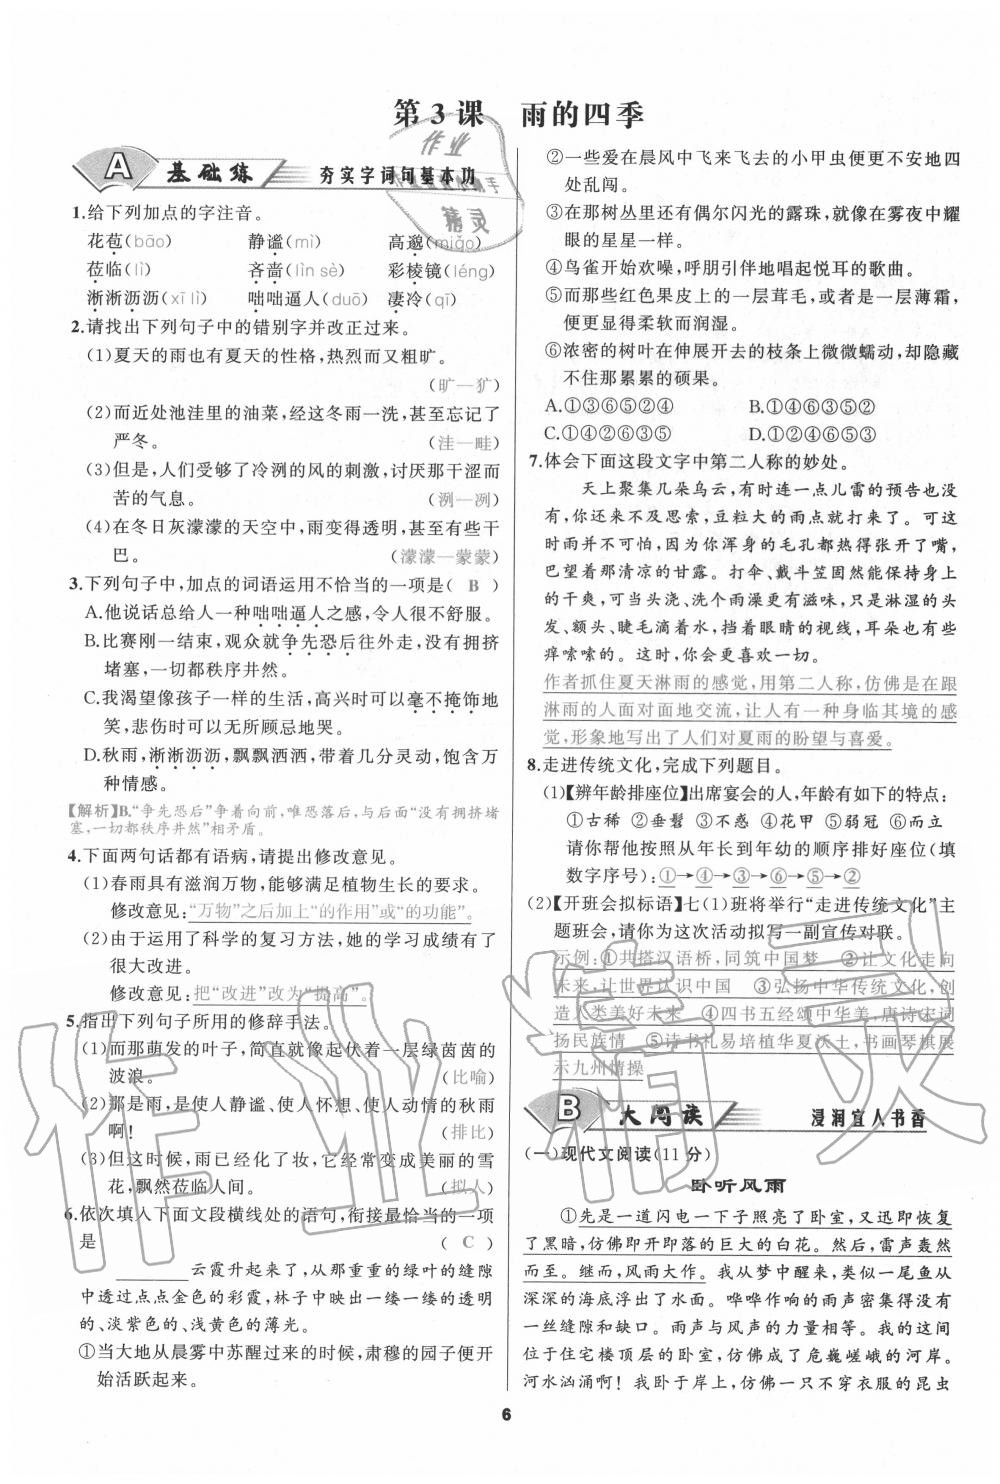 第3课 雨的四季
A 基础练 夯实字词句基本功
1.给下列加点的字注音。
花苞(bāo) 静谧(mì) 高邈(miǎo)
莅临(lì) 吝啬(lìn sè) 彩棱镜(léng)
淅淅沥沥(xī lì) 咄咄逼人(duō) 凄冷(qī)
2.请找出下列句子中的错别字并改正过来。
(1)夏天的雨也有夏天的性格,热烈而又粗旷。
(旷—犷)
(2)而近处池洼里的油菜,经这冬雨一洗,甚至忘记了
严冬。 (洼—畦)
(3)但是,人们受够了冷洌的风的刺激,讨厌那干涩而
苦的气息。 (洌—冽)
(4)在冬日灰濛濛的天空中,雨变得透明,甚至有些干
巴。 (濛濛—蒙蒙)
3.下列句子中,加点的词语运用不恰当的一项是( B )
A.他说话总给人一种咄咄逼人之感,令人很不舒服。
B.比赛刚一结束,观众就争先恐后往外走,没有拥挤
堵塞,一切都秩序井然。
C.我渴望像孩子一样的生活,高兴时可以毫不掩饰地
笑,悲伤时可以无所顾忌地哭。
D.秋雨,淅淅沥沥,飘飘洒洒,带着几分灵动,饱含万
种情感。
【解析】B.“争先恐后”争着向前,唯恐落后,与后面“没有拥挤堵
塞,一切都秩序井然”相矛盾。
4.下面两句话都有语病,请提出修改意见。
(1)春雨具有滋润万物,能够满足植物生长的要求。
修改意见:“万物”之后加上“的作用”或“的功能”。
(2)由于运用了科学的复习方法,她的学习成绩有了
很大改进。
修改意见:把“改进”改为“提高”。
5.指出下列句子所用的修辞手法。
(1)而那萌发的叶子,简直就像起伏着一层绿茵茵的
波浪。 (比喻)
(2)那是雨,是使人静谧、使人怀想、使人动情的秋雨
啊! (排比)
(3)但这时候,雨已经化了妆,它经常变成美丽的雪
花,飘然莅临人间。 (拟人)
6.依次填入下面文段横线处的语句,衔接最恰当的一项
是 ( C )
________云霞升起来了,从那重重的绿叶的缝隙
中透过点点金色的彩霞,林子中映出一缕一缕的透明
的、淡紫色的、浅黄色的薄光。
①当大地从晨雾中苏醒过来的时候,肃穆的园子便开
始活跃起来。
②一些爱在晨风中飞来飞去的小甲虫便更不安地四
处乱闯。
③在那树丛里还有偶尔闪光的露珠,就像在雾夜中耀
眼的星星一样。
④鸟雀开始欢噪,呼朋引伴地唱起悦耳的歌曲。
⑤而那些红色果皮上的一层茸毛,或者是一层薄霜,
便更显得柔软而润湿。
⑥浓密的树叶在伸展开去的枝条上微微蠕动,却隐藏
不住那累累的硕果。
A.①③⑥⑤②④ B.①④⑥③⑤②
C.①④②⑥③⑤ D.①④②③⑥⑤
7.体会下面这段文字中第二人称的妙处。
天上聚集几朵乌云,有时连一点儿雷的预告也没
有,你还来不及思索,豆粒大的雨点就打来了。可这
时雨并不可怕,因为你浑身的毛孔都热得张开了嘴,
巴望着那清凉的甘露。打伞、戴斗笠固然能保持身上
的干爽,可当头浇、洗个雨澡更有滋味,只是淋湿的头
发、额头、睫毛滴着水,挡着眼睛的视线,耳朵也有些
痒嗦嗦的。这时,你会更喜欢一切。
作者抓住夏天淋雨的感觉,用第二人称,仿佛是在跟
淋雨的人面对面地交流,让人有一种身临其境的感
觉,形象地写出了人们对夏雨的盼望与喜爱。
8.走进传统文化,完成下列题目。
(1)【辨年龄排座位】出席宴会的人,年龄有如下的特点:
①古稀 ②垂髫 ③不惑 ④花甲 ⑤弱冠 ⑥而立
请你帮他按照从年长到年幼的顺序排好座位(填
数字序号):①→④→③→⑥→⑤→②
(2)【开班会拟标语】七(1)班将举行“走进传统文化”主
题班会,请你为这次活动拟写一副宣传对联。
示例:①共搭汉语桥,同筑中国梦 ②让文化走向
未来,让世界认识中国 ③弘扬中华传统文化,创
造人类美好未来 ④四书五经颂中华美,唐诗宋词
扬民族情 ⑤读书礼易培植华夏沃土,书画琴棋展
示九州情操
B 大阅读 浸润宜人书香
(一)现代文阅读(11分)
卧听风雨
①先是一道闪电一下子照亮了卧室,又迅即恢复
了黑暗,仿佛即开即落的巨大的白花。然后,雷声轰然
而至。继而,风雨大作。我从梦中醒来,类似一尾鱼从
深深的海底浮出了水面。哗哗作响的雨声密集得没有
一丝缝隙和缺口。雨声与风声的力量相等。我的这间
位于住宅楼顶层的卧室,仿佛成了危巍嵯峨的河岸。
河水汹涌啊!我卧于床上,仿佛一只不穿衣服的昆虫
6
作业
精灵
作业精灵